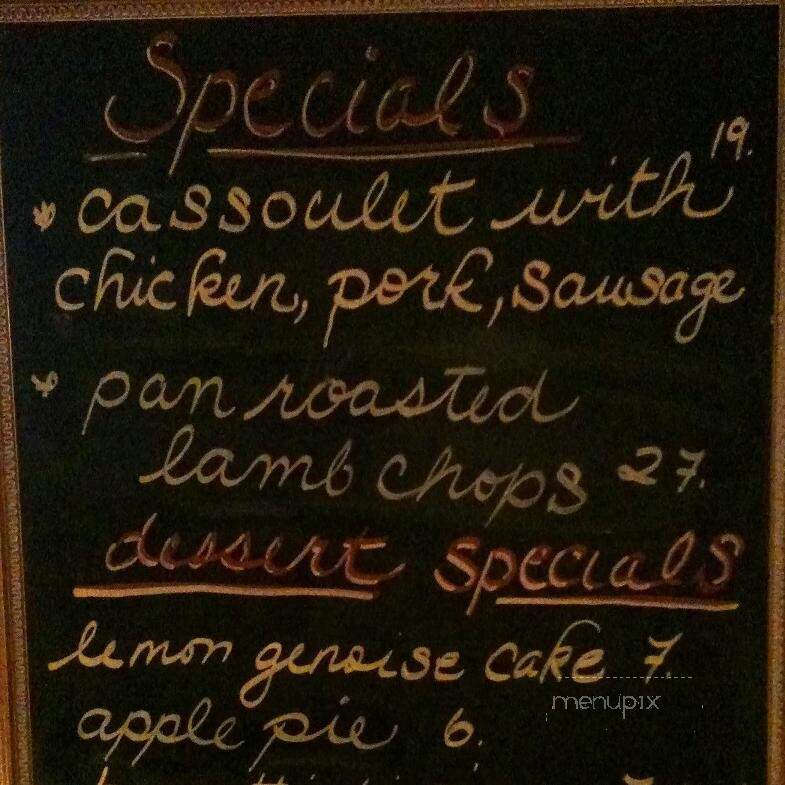 Specials
19.
cassoulet with
chicken, pork, sausage
pan roasted
lamb chops 27.
dessert specials
lemon genoise cake 7.
menupix
apple pie 6.